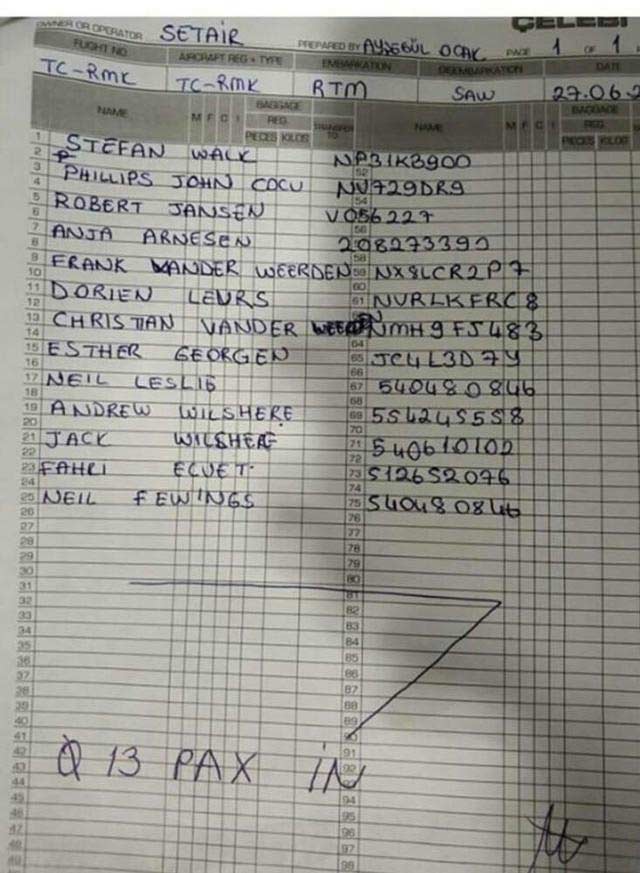 OWNER OR OPERATOR SETAIR PREPARED BY AYŞEGÜL OCAK PAGE 1 OF 1
ÇELEBİ
FLIGHT NO. AIRCRAFT REG + TYPE EMBARKATION DISEMBARKATION DATE
TC-RMK TC-RMK RTM SAW 27.06.2
NAME M F C I BAGGAGE REG. PIECES KILOS TRANSFER TO NAME M F C I BAGGAGE REG PIECES KILOS
1
2 STEFAN WALK NP31KB900
3 52
4 PHILLIPS JOHN COCU NV729DR9
5 54
6 ROBERT JANSEN VO56227
7 56
8 ANJA ARNESEN 208273390
9 58
10 FRANK VANDER WEERDEN 59 NX8LCR2P7
11 60
12 DORIEN LEURS 61 NVRLKFRC8
13
14 CHRISTIAN VANDER NMH9FJ483
15 64
16 ESTHER GEORGEN 65 JC4L3D7Y
17 66
18 NEIL LESLIE 67 540480846
19 68
20 ANDREW WILSHERE 69 554245558
21 70
22 JACK WILSHERE 71 540610102
23 72
24 FAHRI ECVET. 73 512652076
25 74
26 NEIL FEWINGS 75 540480846
27 76
28 77
29 78
30 79
31 80
32 81
33 82
34 83
35 84
36 85
37 86
38 87
39 88
40 89
41 90
42 91
43 13 PAX İN 92
44
45 94
46 95
47 96
48 97
49 98